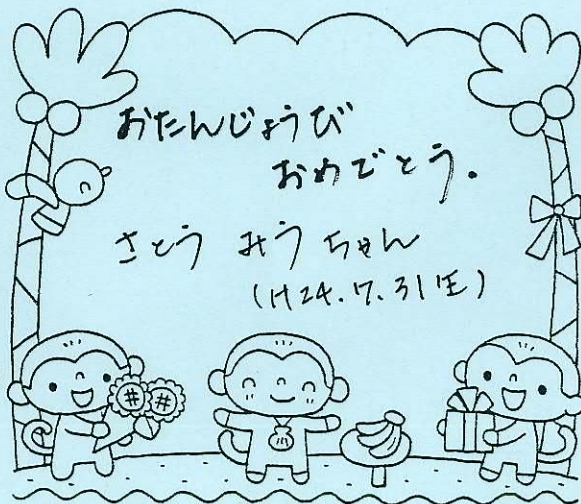 おたんじょうび
おめでとう.
さとう みう ちゃん
(H24.7.31生)